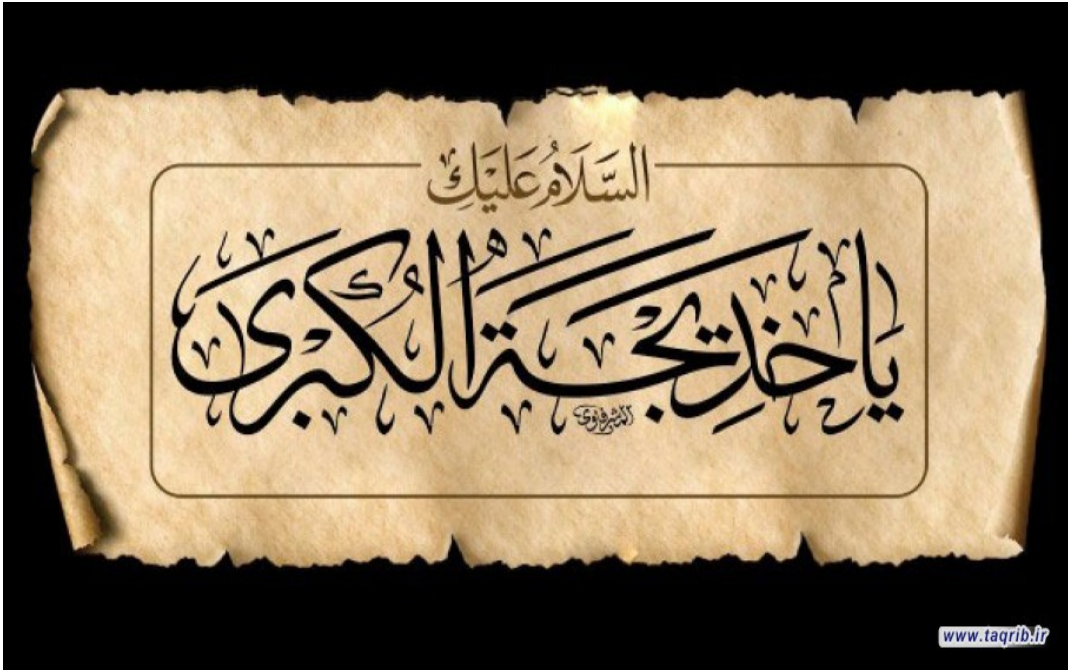 السَّلَامُ عَلَيْكِ
يَا خَدِيجَةُ الْكُبْرَىٰ
www.taqrib.ir